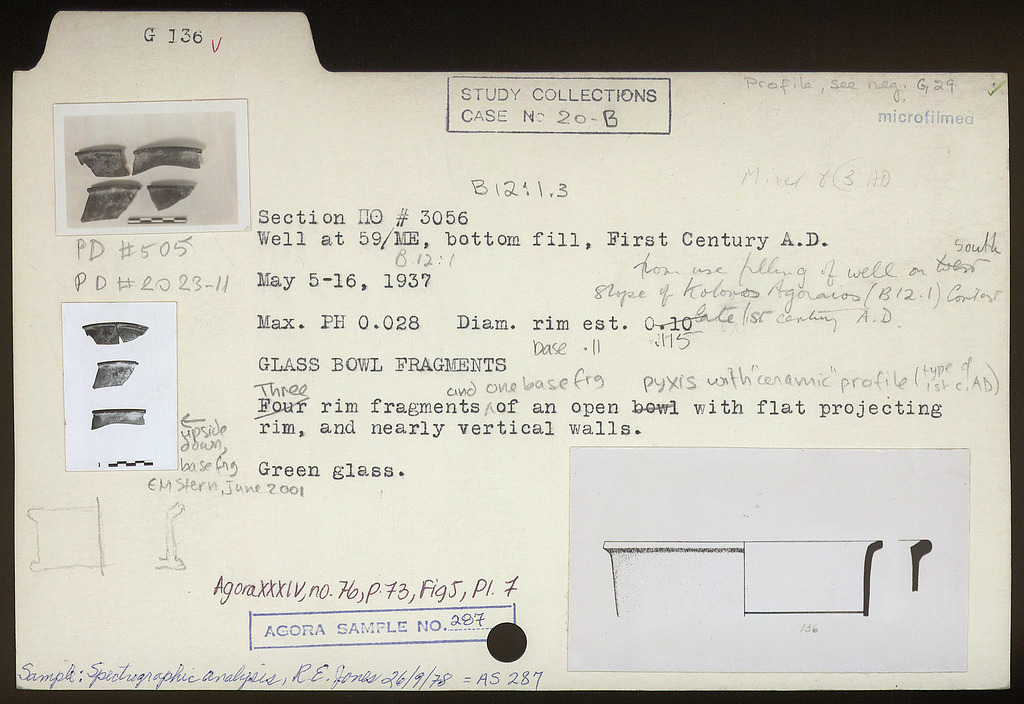 G 136 V
Profile, see neg. G, 29
STUDY COLLECTIONS
CASE No 20-B
microfilmed
B 12:1.3
AD
Section ΠΘ # 3056
Well at 59/ME, bottom fill, First Century A.D.
B 12:1
South
from use filling of well on west
slope of Kolonos Agoraios (B 12:1) Context
late 1st century A.D.
PD #505
PD #2023-11
May 5-16, 1937
Max. PH 0.028 Diam. rim est. 0.10
base .11 .115
GLASS BOWL FRAGMENTS
Three and one base frg pyxis with "ceramic" profile (type of 1st c. AD)
Four rim fragments of an open bowl with flat projecting
rim, and nearly vertical walls.
← upside
down,
base frg
EMStern, June 2001
Green glass.
136
Agora XXXIV, no. 76, p. 73, Fig 5, Pl. 7
AGORA SAMPLE NO. 287
Sample: Spectrographic analysis, R.E. Jones 26/9/78 = AS 287